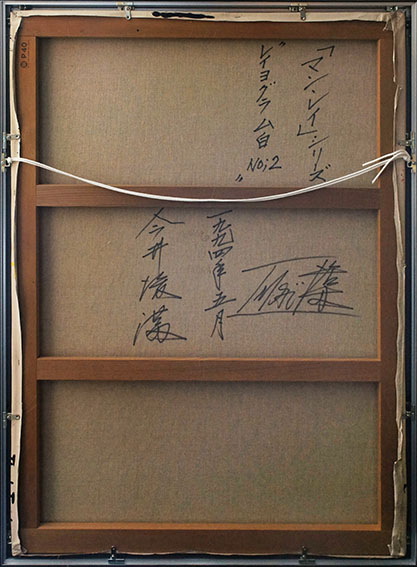 「マン・レイ」シリーズ
"レイヨグラム白 No;2"
一九九四年五月
今井俊満
Imaï 俊満
P40